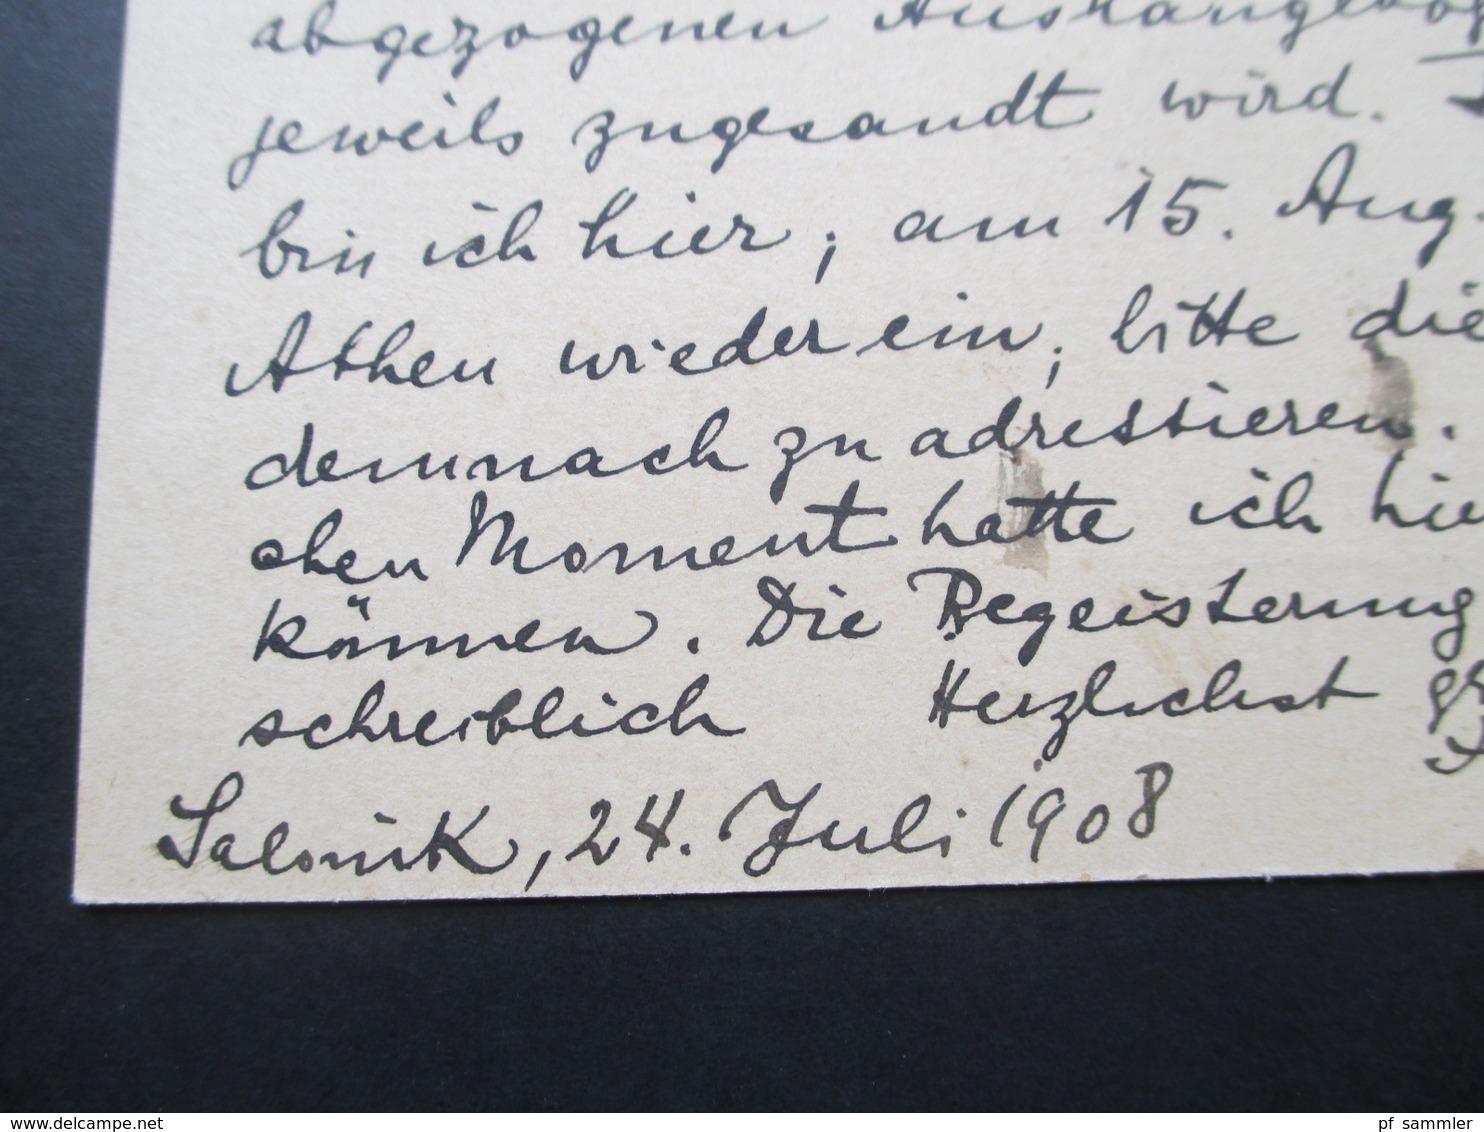 abgezogenen Aushängebog
jeweils zugesandt wird.
bin ich hier, am 15. Aug.
Athen wieder ein, bitte die
demnach zu adressieren.
chen Moment hatte ich hie
können. Die Begeisterung
schreiblich Herzlichst
Salonik, 24. Juli 1908
www.delcampe.net
pf_sammler